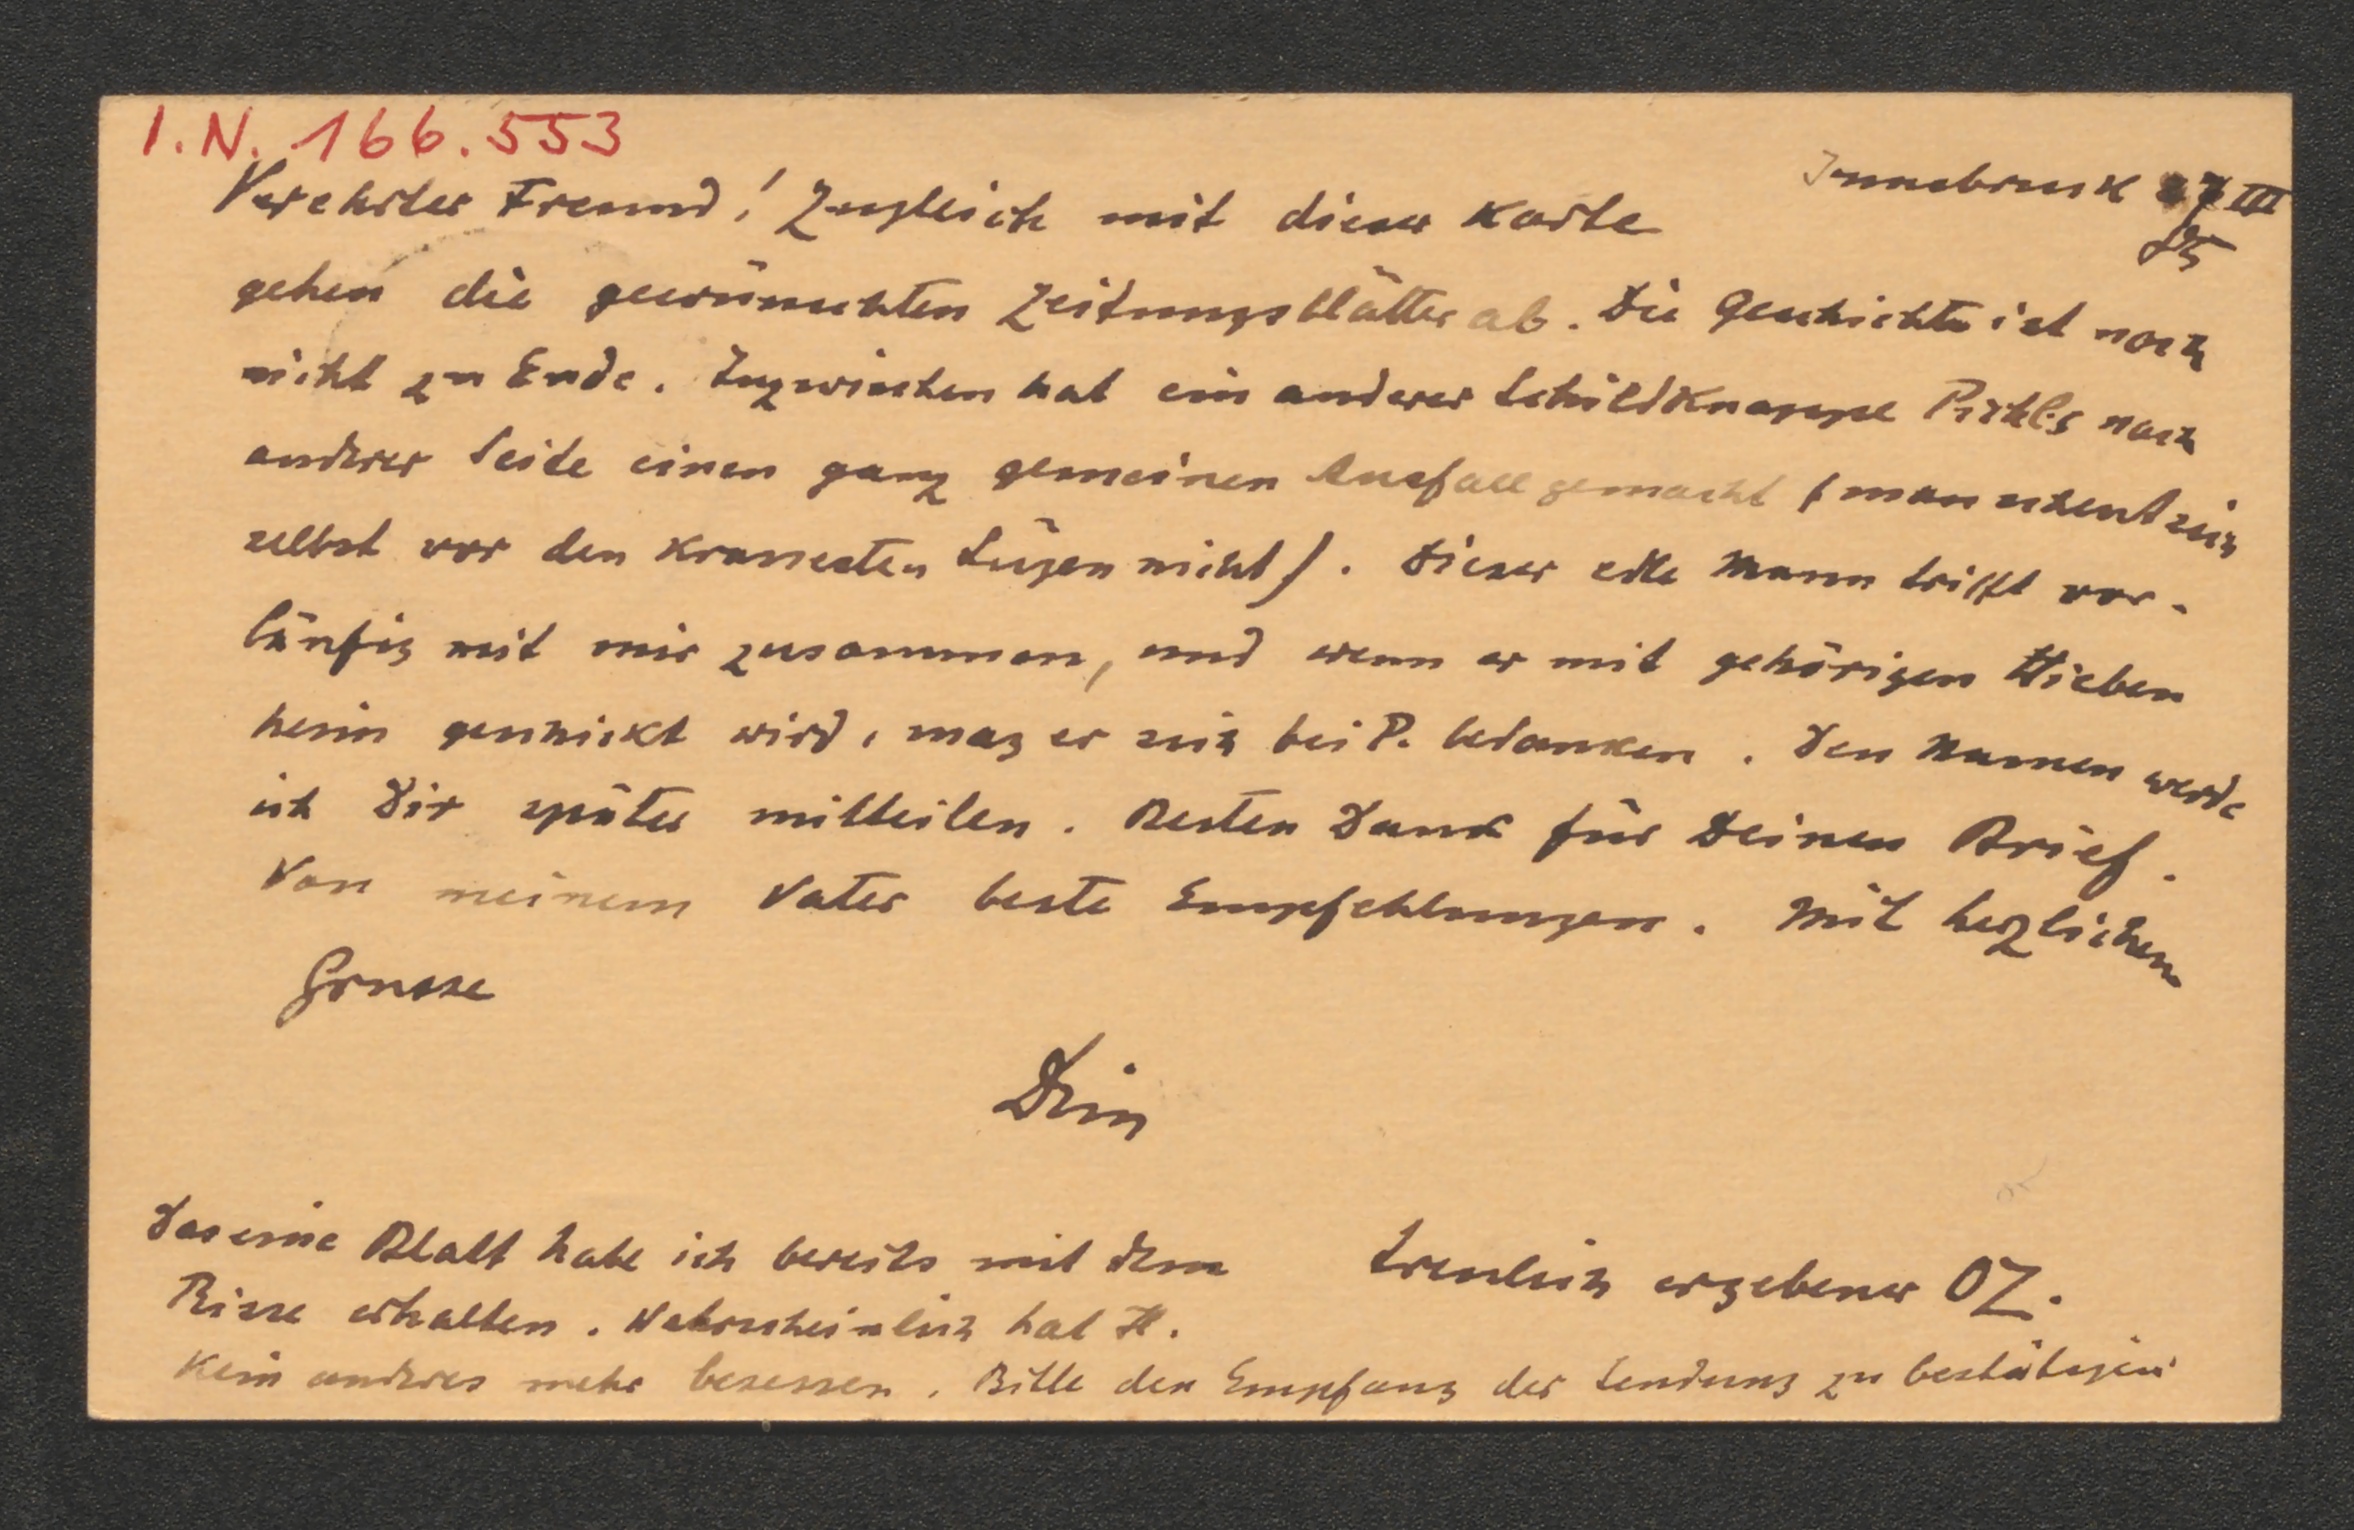 I.N. 166.553
Innsbruck 27 III
85
Verehrter Freund! Zugleich mit dieser Karte
gehen die gewünschten Zeitungsblätter ab. Die Geschichte ist noch
nicht zu Ende. Inzwischen hat ein anderer Schildknappe Pichlers nach
anderer Seite einen ganz gemeinen Ausfall gemacht (man scheut sich
selbst vor den krassesten Lügen nicht). Dieser edle Mann trifft vor-
läufig mit mir zusammen, und wenn er mit gehörigen Hieben
heim geschickt wird, mag er sich bei P. bedanken. Den Namen werde
ich Dir später mitteilen. Besten Dank für Deinen Brief.
Von meinem Vater beste Empfehlungen. Mit herzlichem
Grusse
Dein
treulich ergebener OZ.
Das eine Blatt habe ich bereits mit dem
Risse erhalten. Wahrscheinlich hat H.
kein anderes mehr besessen. Bitte den Empfang der Sendung zu bestätigen